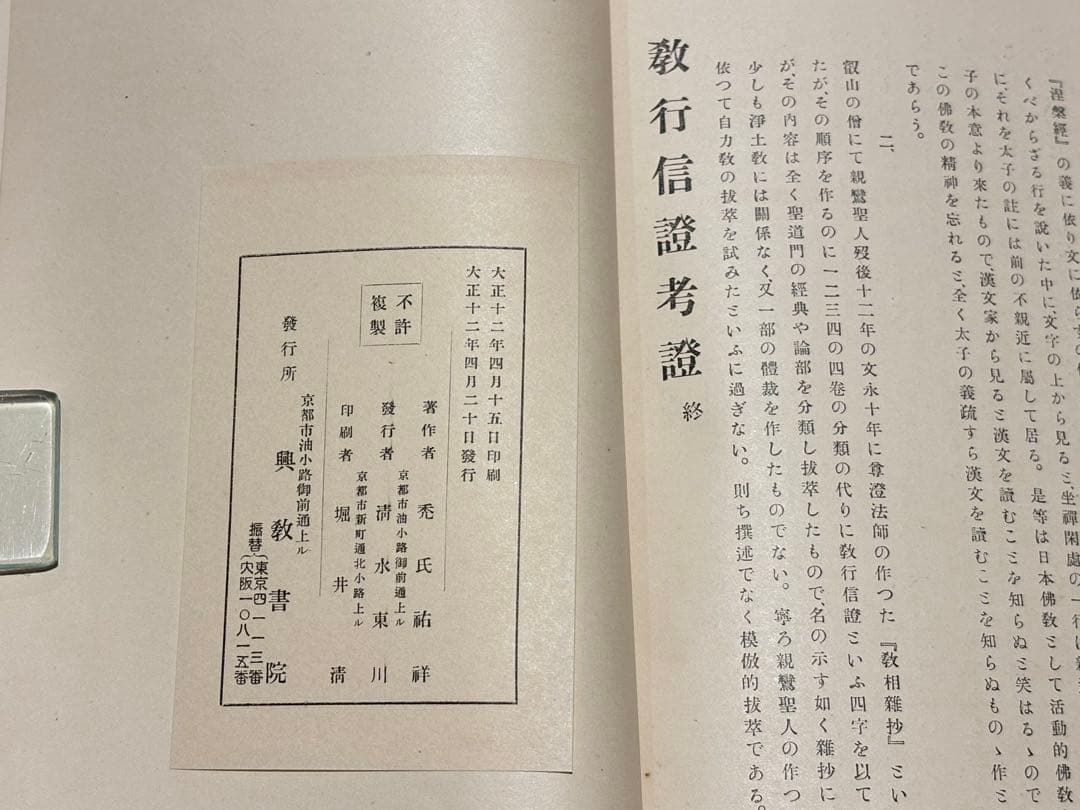 『涅槃經』の義に依り文に依らず
くべからざる行を說いた中に、文字の上から見ると、坐禪閑處の一行は
に、それを太子の註には前の不親近に屬して居る。是等は日本佛敎として活動的佛敎
子の本意より來たもので、漢文家から見ると漢文を讀むことを知らぬと笑はるゝので
この佛敎の精神を忘れると、全く太子の義疏すら漢文を讀むことを知らぬものゝ作と
であらう。
二、
叡山の僧にて親鸞聖人歿後十二年の文永十年に尊澄法師の作つた『敎相雜抄』とい
たが、その順序を作るのに一二三四の四卷の分類の代りに敎行信證といふ四字を以て
が、その內容は全く聖道門の經典や論部を分類し拔萃したもので、名の示す如く雜抄に
少しも淨土敎には關係なく、又一部の體裁を作したものでない。寧ろ親鸞聖人の作つ
依つて自力敎の拔萃を試みたといふに過ぎない。則ち撰述でなく模倣的拔萃である。
敎行信證考證 終
大正十二年四月十五日印刷
大正十二年四月二十日發行
不許
複製
著作者 禿氏祐祥
京都市油小路御前通上ル
發行者 淸水東川
京都市新町通北小路上ル
印刷者 堀井淸
京都市油小路御前通上ル
發行所 興敎書院
振替(東京四一一三番
大阪一〇八一五番